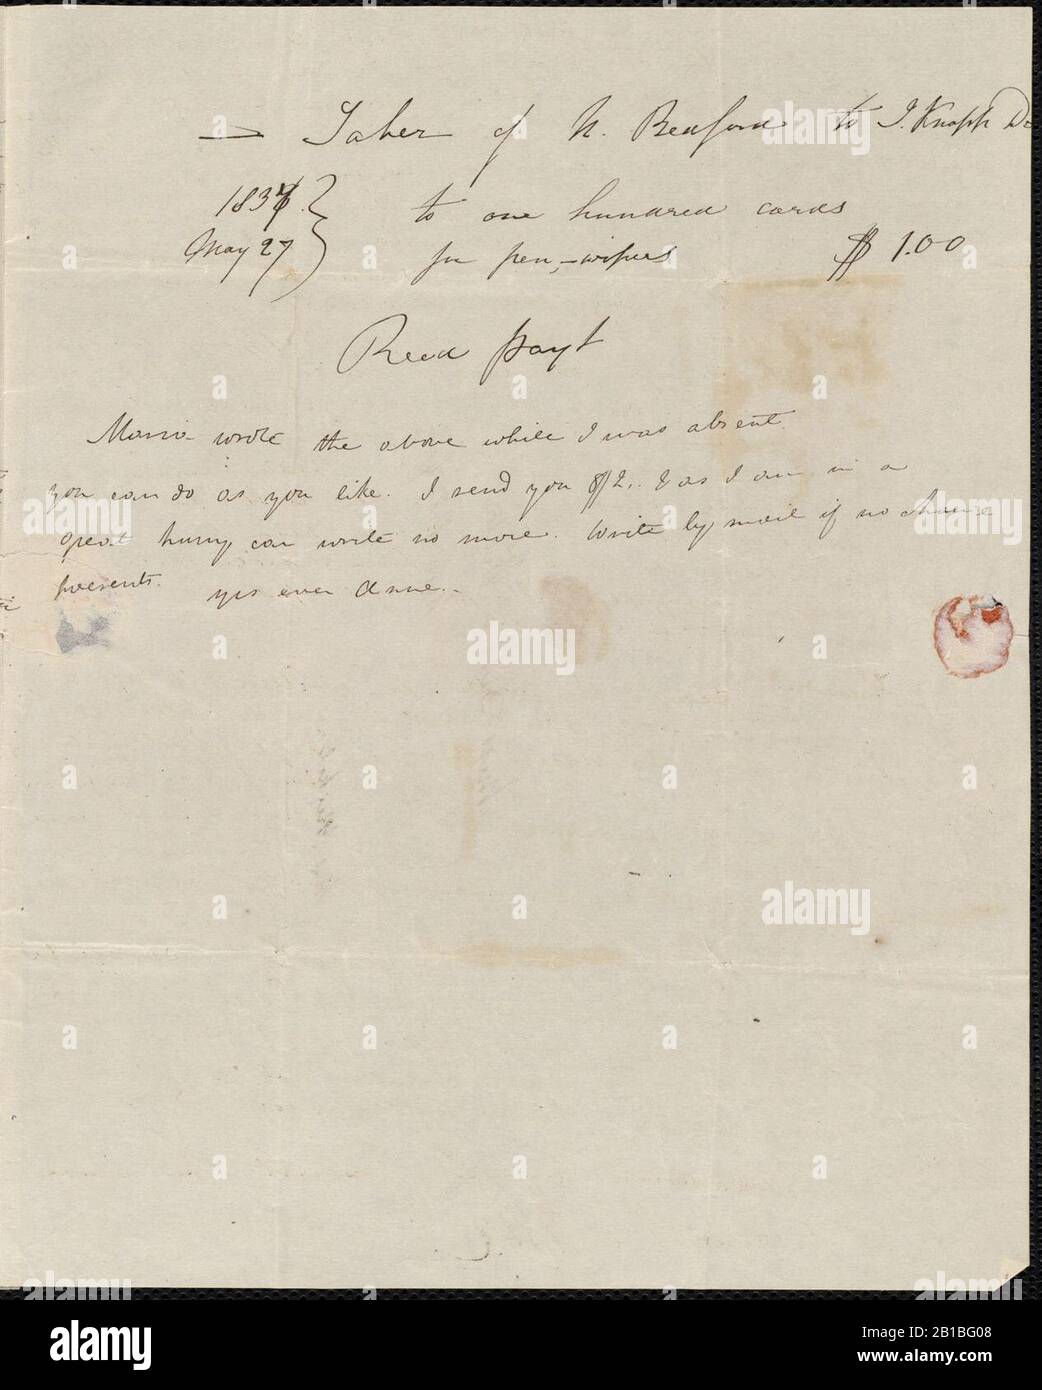 — Taber of N. Bedford to I. Knapp Dr
1837. to one hundred cards
May 27 for pen-wipers $ 1.00
Recd payt
Maria wrote the above while I was absent.
you can do as you like. I send you $2. & as I am in a
great hurry can write no more. Write by mail if no chance
presents. yrs ever Anne..
alamy
alamy
alamy
alamy
a
alamy
Image ID: 2B1BG08
www.alamy.com